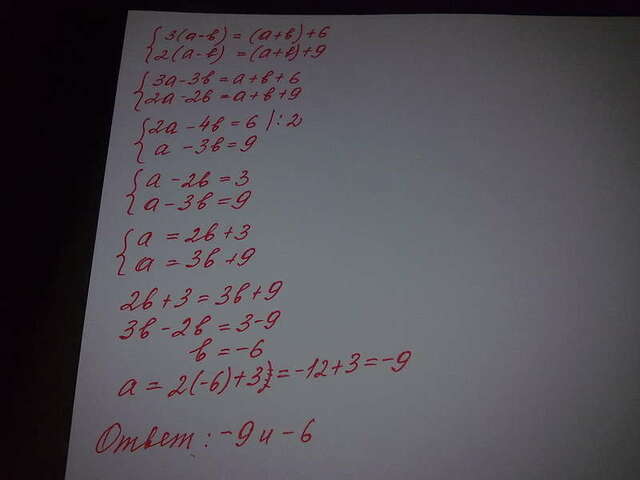 {3(а-в) = (а+в)+6
{2(а-в) = (а+в)+9
{3а-3в=а+в+6
{2а-2в=а+в+9
{2а-4в=6 |:2
{а -3в=9
{а-2в=3
{а-3в=9
{а = 2в+3
{а = 3в+9
2в+3=3в+9
3в-2в=3-9
в=-6
а = 2(-6)+3}=-12+3=-9
Ответ: -9 и -6